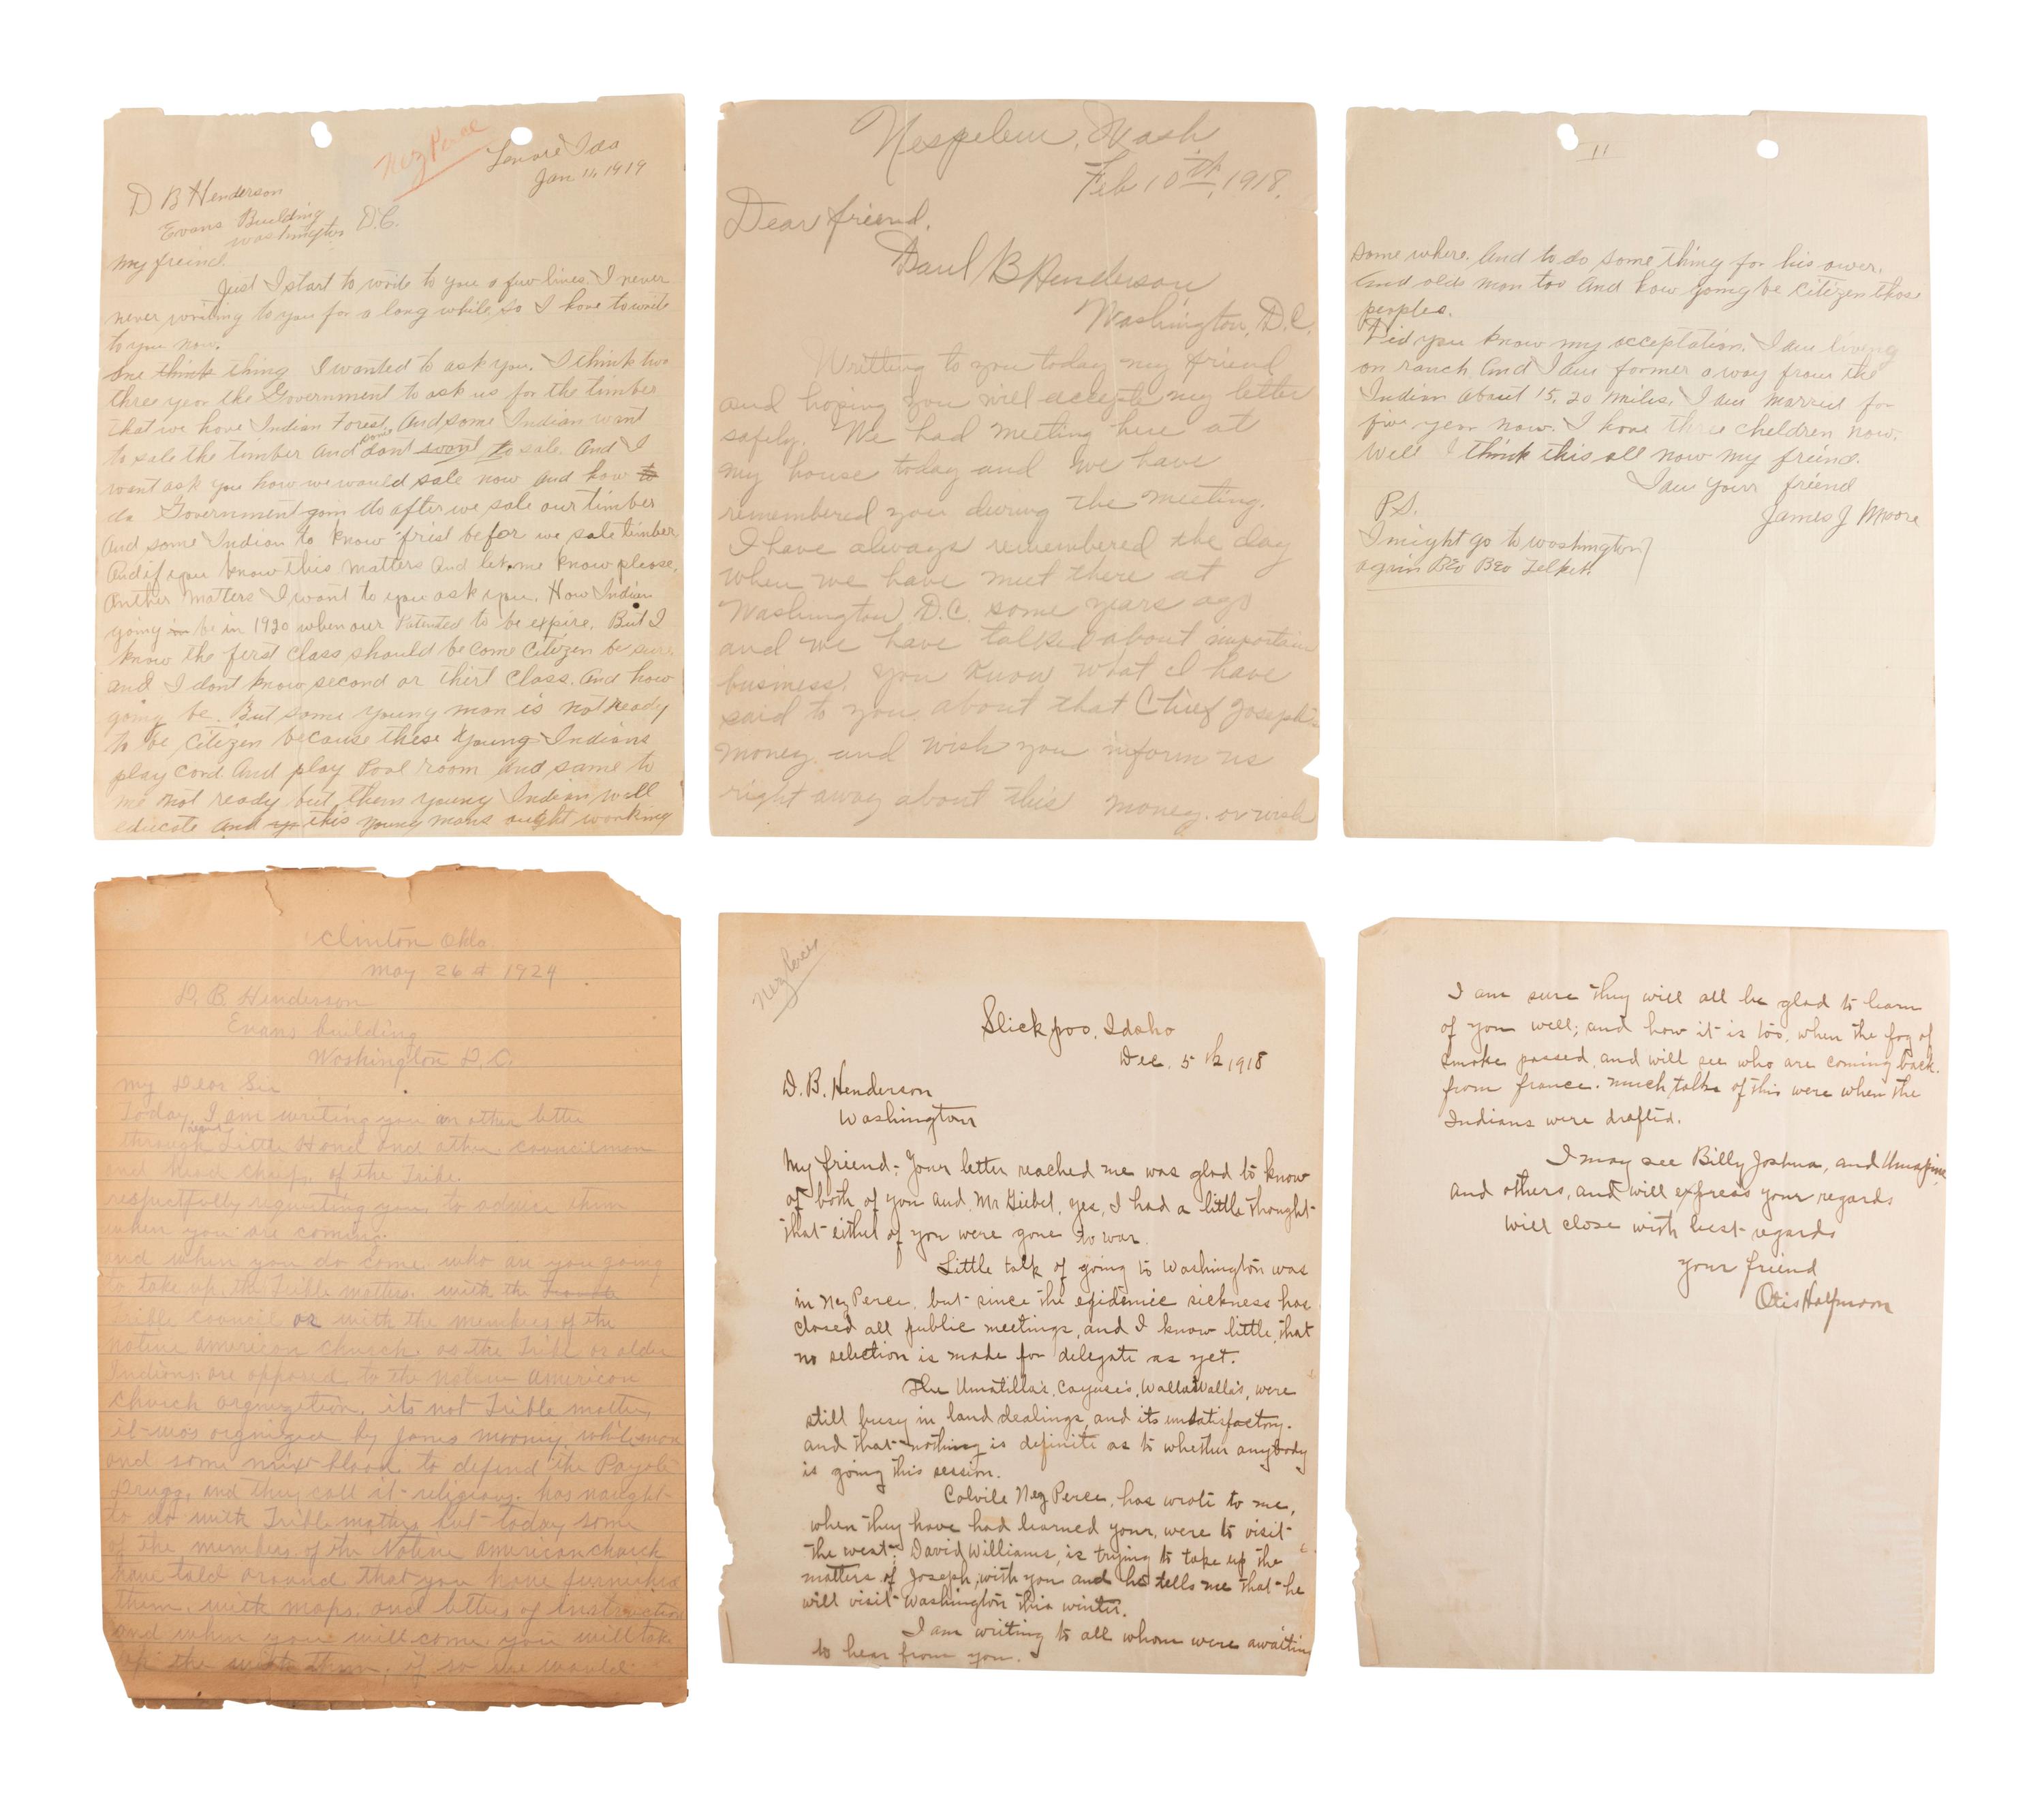 Nez Perce
Lenore Ida
Jan 11, 1919
D B Henderson
Evans Building
Washington D.C.
My freind.
Just I start to write to you a few lines. I never
never writing to you for a long while, so I have to write
to you now.
One think thing I wanted to ask you. I think two
three year the Government to ask us for the timber
that we have Indian Forest, And some Indian want
to sale the timber and some dont want to sale. And I
want ask you how we would sale now and how to
do Government goin do after we sale our timber
And some Indian to know frist befor we sale timber
And if you know this matters and let me know please.
Anther matters I want to you ask you. How Indian
going in be in 1920 when our Patented to be expire. But I
know the first class should become Citizen be sure.
and I dont know second or thirt class. And how
going be. But some young man is not ready
to be Citizen because these young Indians
play cord and play Pool room and same to
me not ready but them young Indian well
educate and this young mans ought working
Nespelem, Wash
Feb 10th, 1918.
Dear friend.
Daul B Henderson
Washington, D.C.
Writting to you today my friend
and hoping you will accepte my letter
safely. We had meeting here at
my house today and we have
remembered you during the meeting.
I have always remembered the day
when we have meet there at
Washington, D.C. some years ago
and we have talked about importain
business, you know what I have
said to you about that Chief Joseph's
money. and wish you inform us
right away about this money. or wish
11
some where. And to do some thing for his ower.
And olds man too and how going be citizen thos
peoples.
Did you know my acceptation. I am living
on ranch. And I am former away from the
Indian about 15, 20 miles. I am married for
five year now. I have three cheldren now.
Well I think this all now my freind.
I am your friend
James J Moore
P.S.
I might go to washington
again Beo Beo Telket.
Clinton Okla.
May 26 t 1924
D. B. Henderson
Evans building
Washington D.C.
My Dear Sir
Today I am writing you an other letter
through Little Hand and other councilman
and head chiefs of the Tribe.
respectfully requiting you to advice them
when you are coming.
and when you do come who are you going
to take up the Trible matters. with the
Trible Council or with the members of the
native american church. as the Tribe or older
Indians are opposed to the native american
church orgnization. its not Trible matter,
it was orgnized by James Mooney white man
and some mixt blood to defend the Payote
Drugg, and they call it religious. has naught
to do with Trible matters but today some
of the members of the Native american church
have told around that you have furnished
them with maps. and letters of instruction
and when you will come you will take
up the with them, if so we would
Nez Perces
Slickpoo, Idaho
Dec. 5th 1918
D. B. Henderson
Washington
My friend:- Your letter reached me was glad to know
of both of you and Mr Giebel, yes, I had a little thought
that either of you were gone to war.
Little talk of going to Washington was
in Nez Perce, but since the epidemic sickness has
closed all public meetings, and I know little, that
no selection is made for delegate as yet.
The Umatilla's, Cayuse's, Walla Walla's, were
still busy in land dealings, and its unsatisfactory.
and that nothing is definite as to whether anybody
is going this session.
Colvile Nez Perce, has wrote to me,
when they have had learned your, were to visit
the west; David Williams, is trying to take up the
matters of Joseph, with you and he tells me that he
will visit Washington this winter.
I am writing to all whom were awaiting
to hear from you.
I am sure they will all be glad to learn
of you well; and how it is too, when the fog of
smoke passed, and will see who are coming back
from france. much talks of this were when the
Indians were drafted.
I may see Billy Joshua, and Umapine
and others, and will express your regards
will close with best regards
your friend
Otis Halfmoon